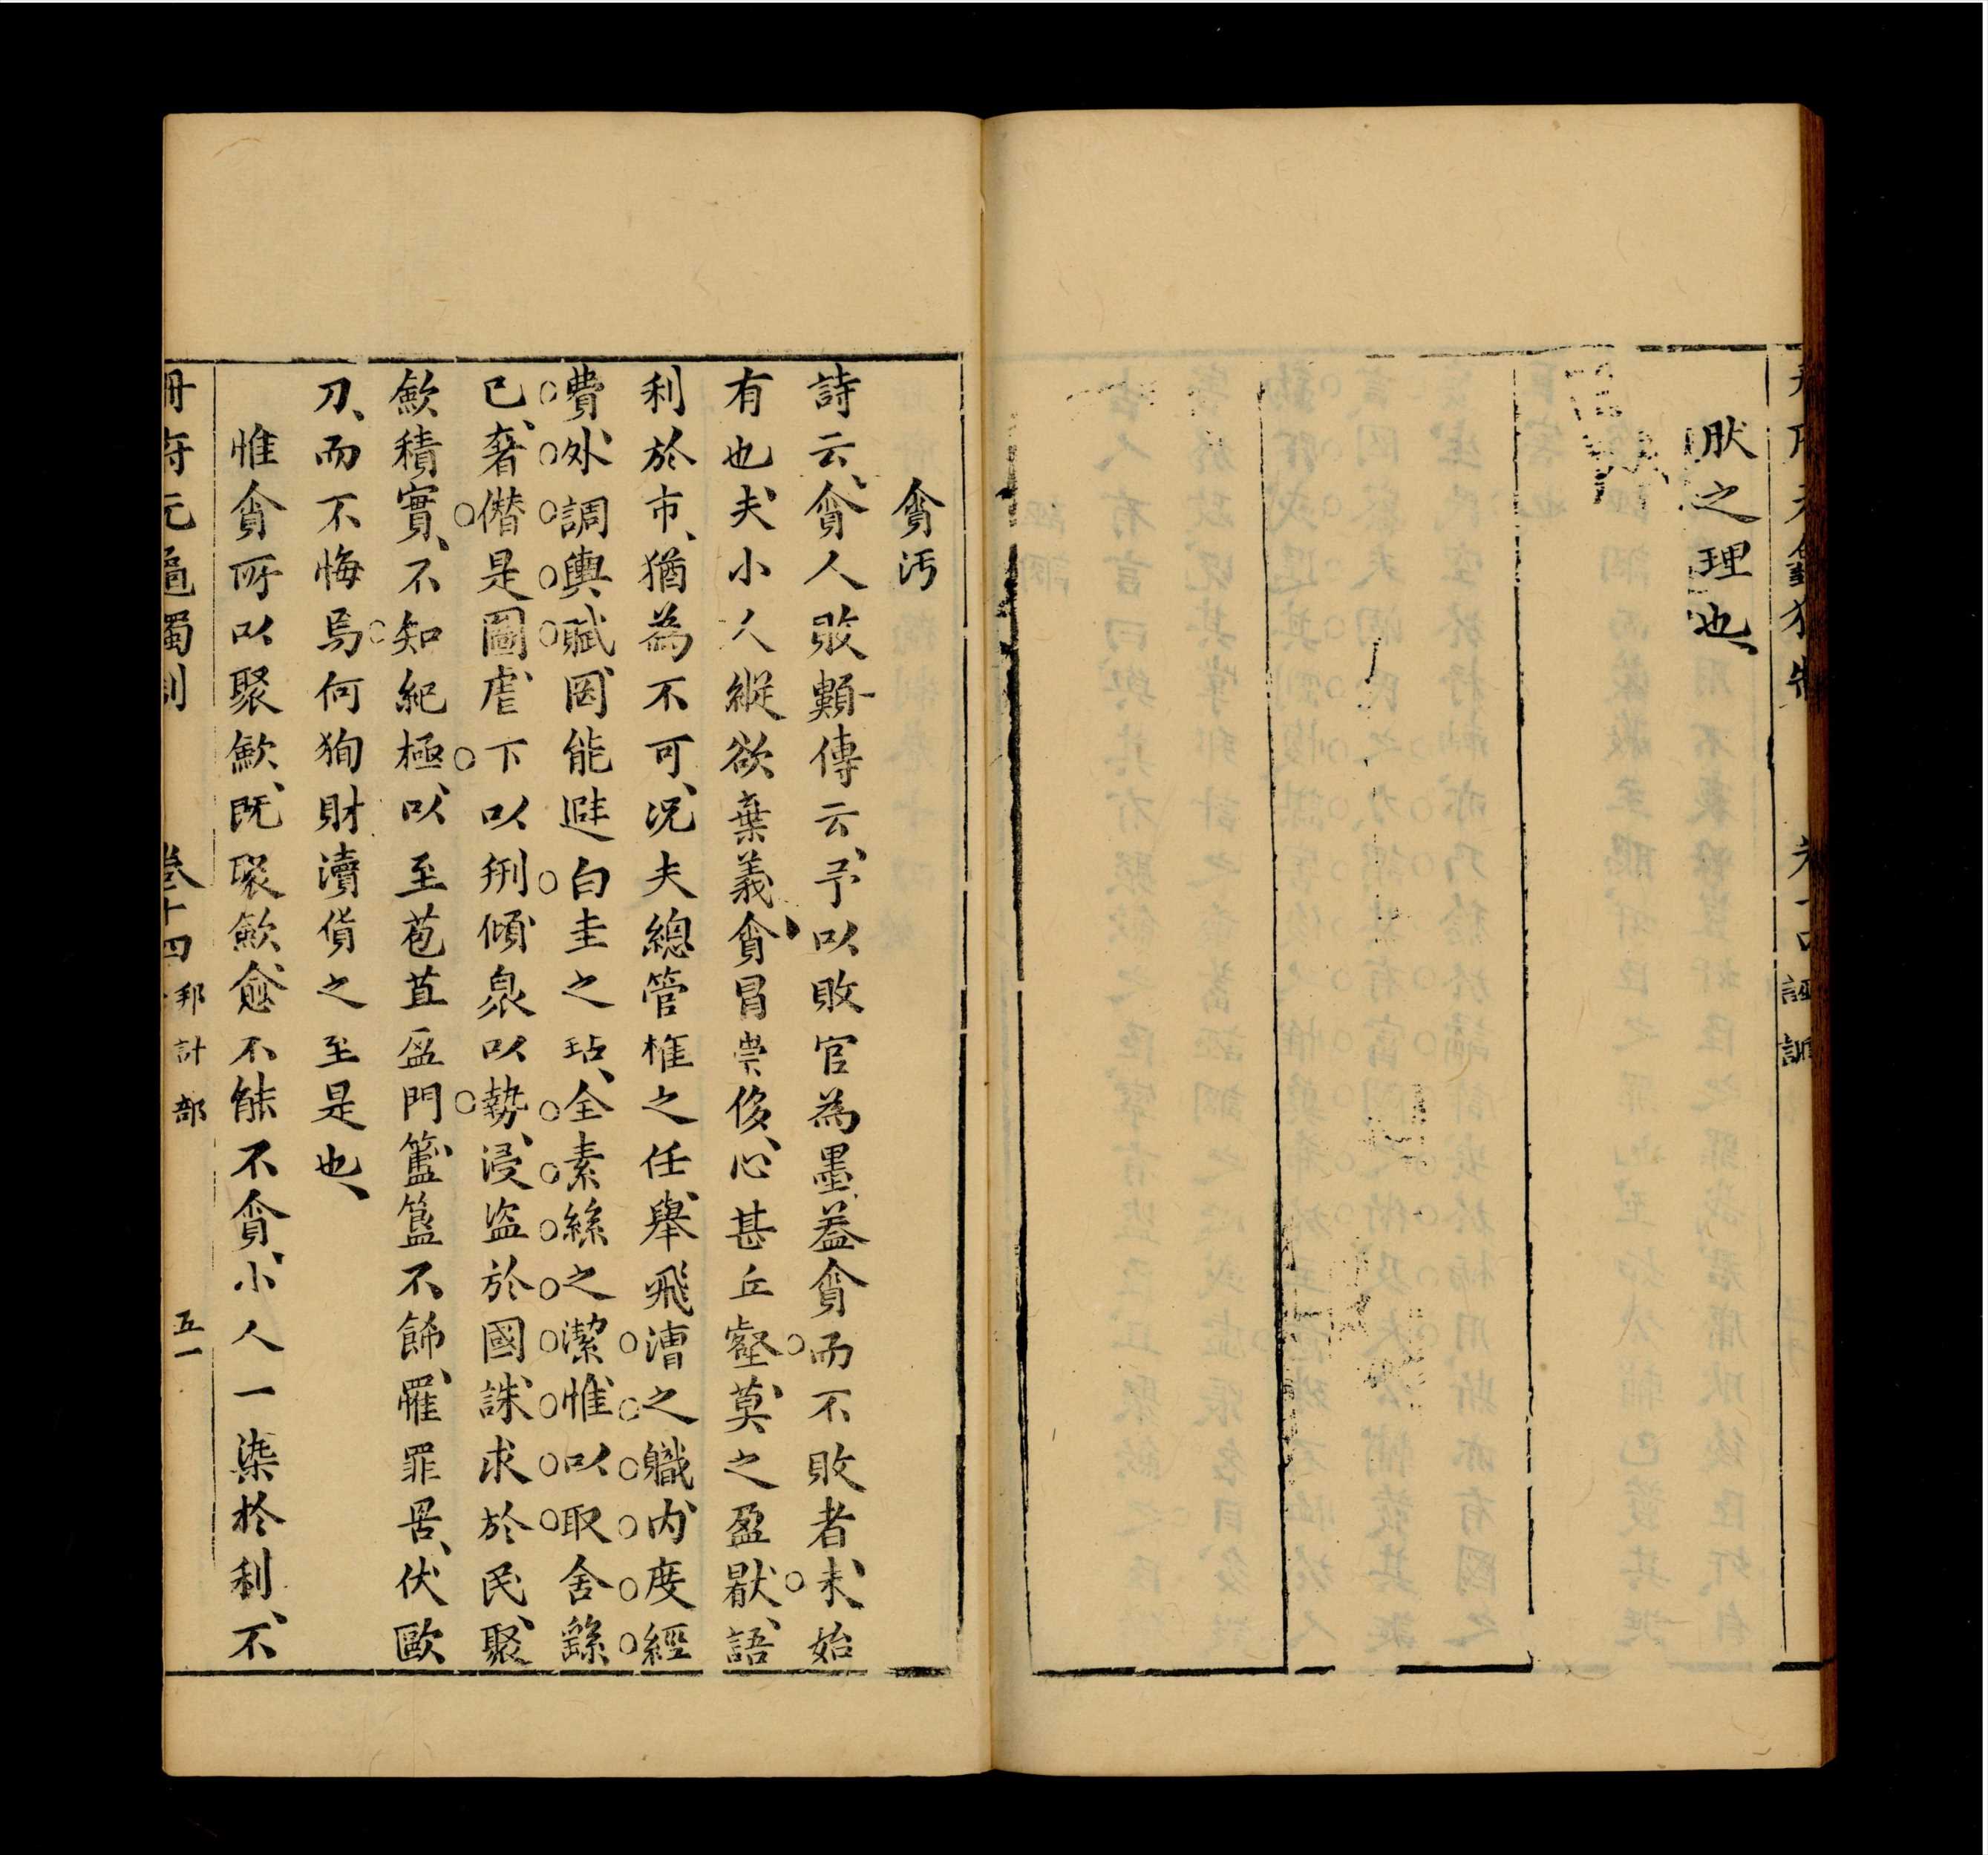 肰之理也
誣誷
貪汚
詩云貪人敗𩔖傳云予以敗官為墨葢貪而不敗者未始
有也夫小人縱欲棄義貪冒崇侈心甚丘壑莫之盈厭語
利於市猶為不可况夫總管榷之任舉飛漕之職内度經
費外調輿賦罔能避白圭之玷全素絲之潔惟以取舍繇
已奢僭是圖虐下以刑傾衆以勢浸盜於國誅求於民聚
歛積實不知紀極以至苞苴盈門簠簋不飾罹罪罟伏歐
刀而不悔焉何狥財瀆貨之至是也
惟貪所以聚歛既聚歛愈不能不貪小人一染於利不
冊府元龜獨制 卷十四 邦計部 五一